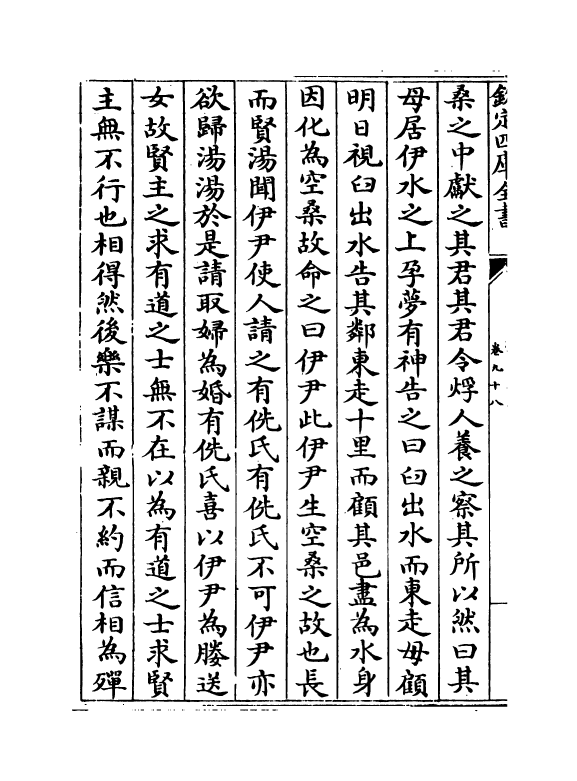 欽定四庫全書
卷九十八
桑之中獻之其君其君令烰人養之察其所以然曰其
母居伊水之上孕夢有神告之曰臼出水而東走毋顧
明日視臼出水告其鄰東走十里而顧其邑盡為水身
因化為空桑故命之曰伊尹此伊尹生空桑之故也長
而賢湯聞伊尹使人請之有侁氏有侁氏不可伊尹亦
欲歸湯湯於是請取婦為婚有侁氏喜以伊尹為媵送
女故賢主之求有道之士無不在以為有道之士求賢
主無不行也相得然後樂不謀而親不約而信相為殫